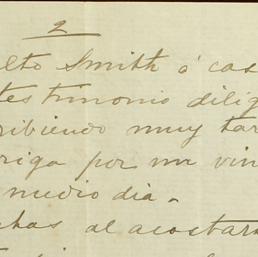 2
elto Smith ó cas
testimonio dilig
ribiendo muy tar
riga por un vin
medio dia.
chas al acostarm